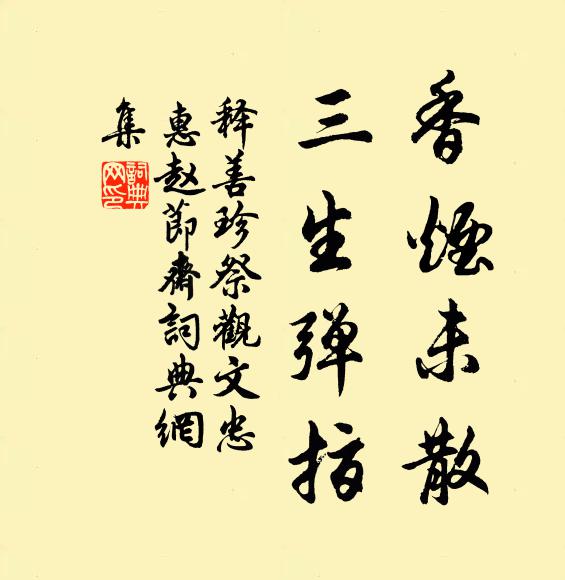 香煙未散
三生弹指
释善珍祭觀文忠
惠赵節齋詞典網
集
詞典網印